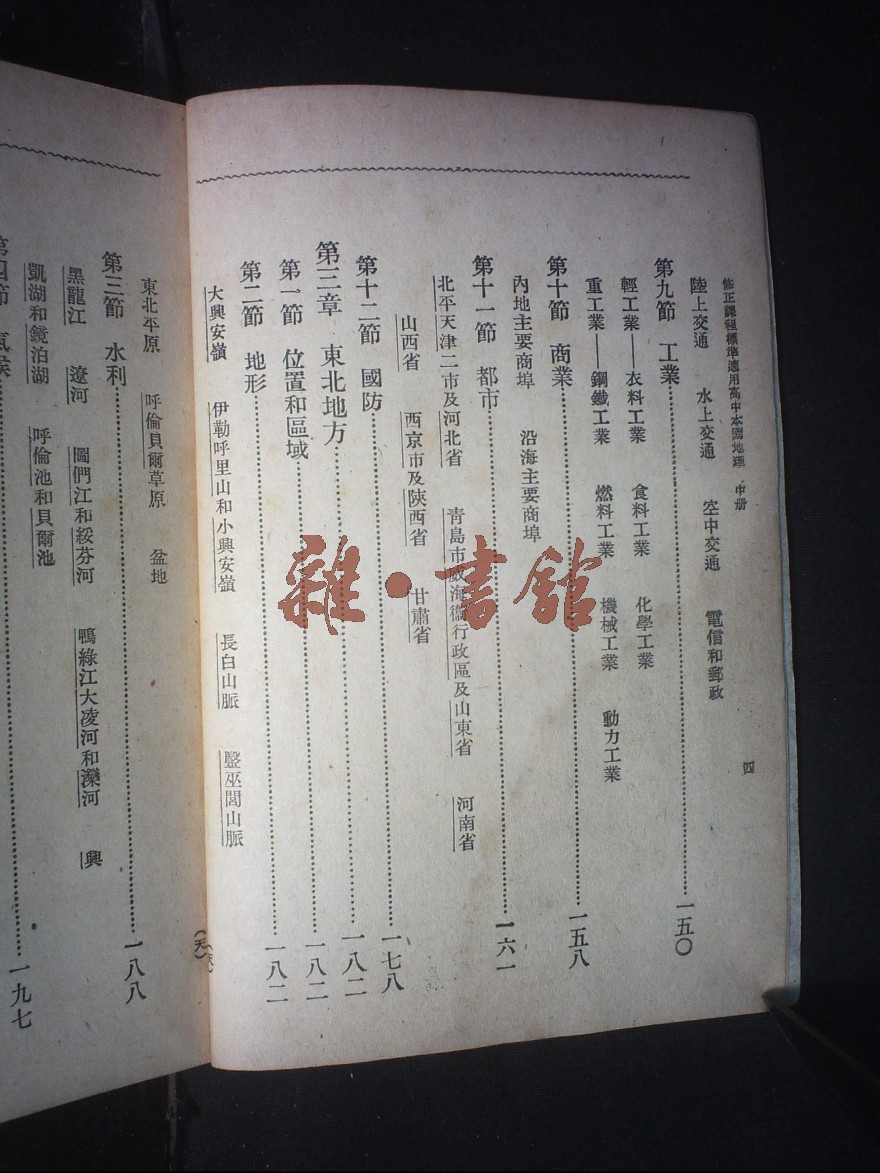 修正課程標準適用高中本國地理 中册
四
陸上交通 水上交通 空中交通 電信和郵政
第九節 工業……一五〇
輕工業——衣料工業 食料工業 化學工業
重工業——鋼鐵工業 燃料工業 機械工業 動力工業
第十節 商業……一五八
內地主要商埠 沿海主要商埠
第十一節 都市……一六一
北平天津二市及河北省 青島市威海衞行政區及山東省 河南省
山西省 西京市及陝西省 甘肅省
第十二節 國防……一七八
第三章 東北地方……一八二
第一節 位置和區域……一八二
第二節 地形……一八二
大興安嶺 伊勒呼里山和小興安嶺 長白山脈 醫巫閭山脈
東北平原 呼倫貝爾草原 盆地
第三節 水利……一八八
黑龍江 遼河 圖們江和綏芬河 鴨綠江大凌河和灤河 興
凱湖和鏡泊湖 呼倫池和貝爾池
第四節 氣候……一九七
雜·書館